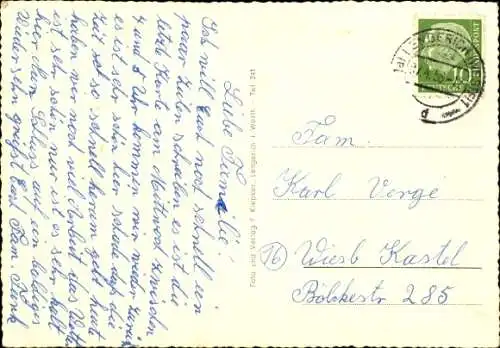 Liebe Familie!
Ich will Euch noch schnell ein
paar Zeilen schreiben es ist die
letzte Karte am Mittwoch zwischen
4 und 5 Uhr kommen wir wieder zurück
es ist sehr schön hier schade daß die
Zeit so schnell herum geht heute
haben wir noch viel das Wetter
ist sehr schön nur ist es sehr kalt
hier dann Schluß auf ein baldiges
Wieder sehn grüßt Euch Fam.
Foto und Verlag F. Kiepker, Lengerich i. Westf. Tel. 241
LENGERICH (WESTF)
d
POST
10
Fam.
Karl Verge
16 Wiesb Kastel
Bölkestr 285